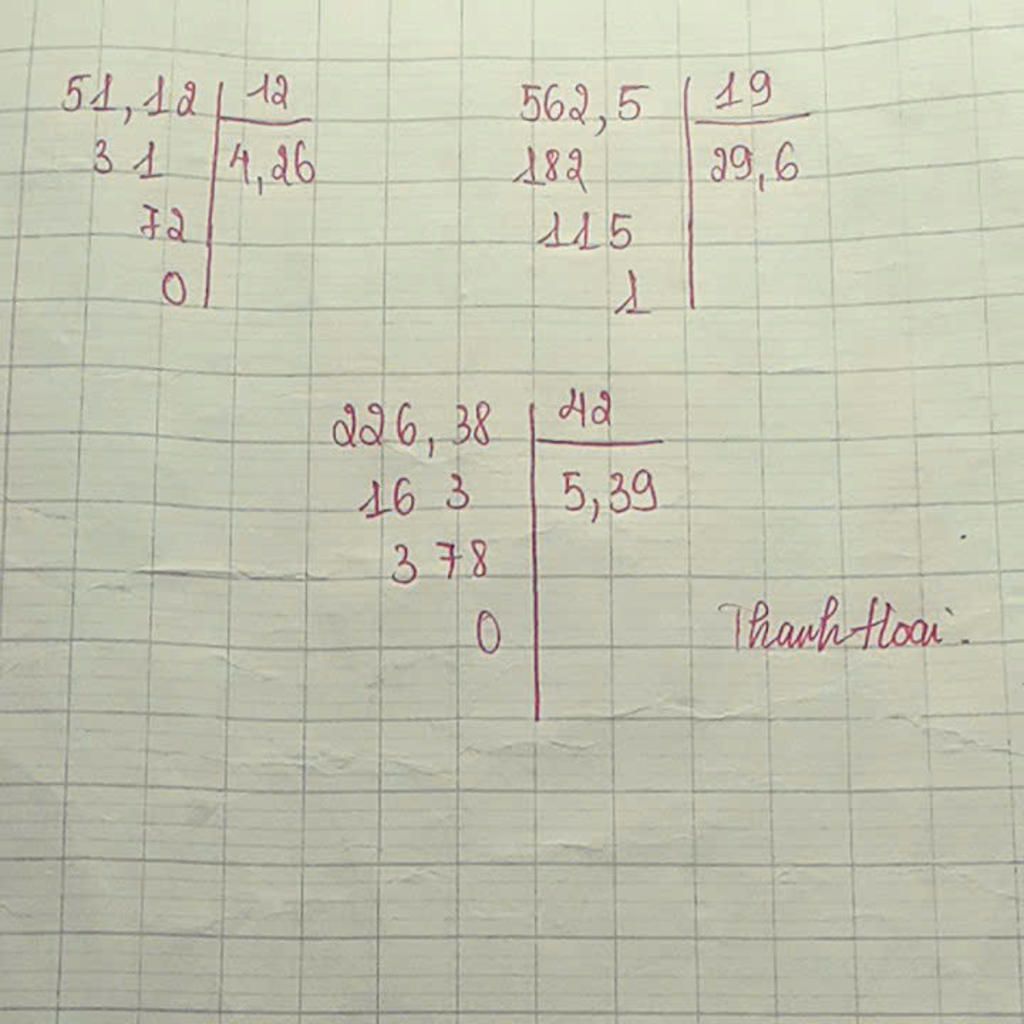 51,12 12
3 1 4,26
72
0
562,5 19
182 29,6
115
1
226,38 42
16 3 5,39
3 78
0
Thanh Hoài.